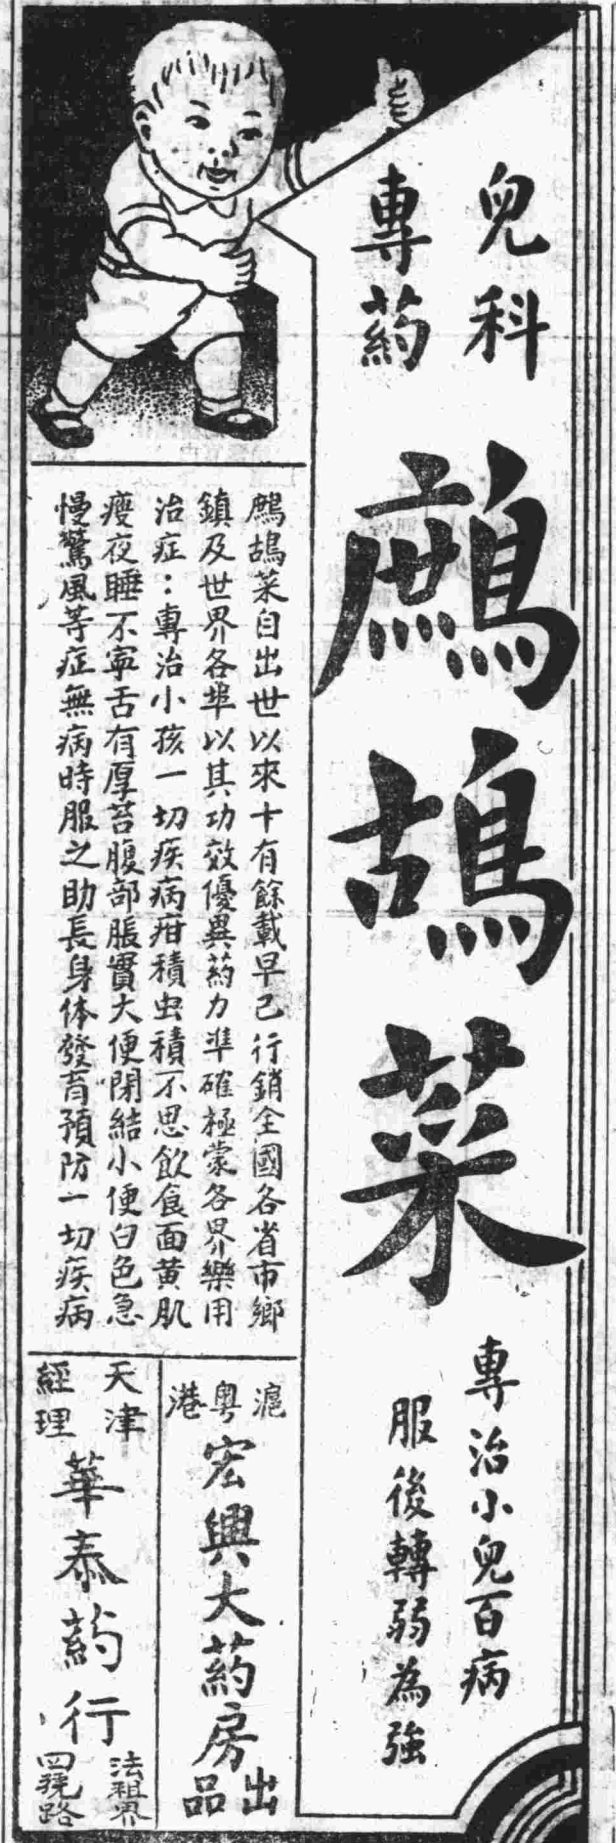 兒科
專葯
鷓鴣菜
專治小兒百病
服後轉弱為強
鷓鴣菜自出世以來十有餘載早已行銷全國各省市鄉
鎮及世界各埠以其功效優異葯力準確極蒙各界樂用
治症：專治小孩一切疾病疳積虫積不思飲食面黃肌
瘦夜睡不寧舌有厚苔腹部脹實大便閉結小便白色急
慢驚風等症無病時服之助長身体發育預防一切疾病
滬粵港
宏興大葯房
出品
天津
經理
華泰葯行
法租界
四號路